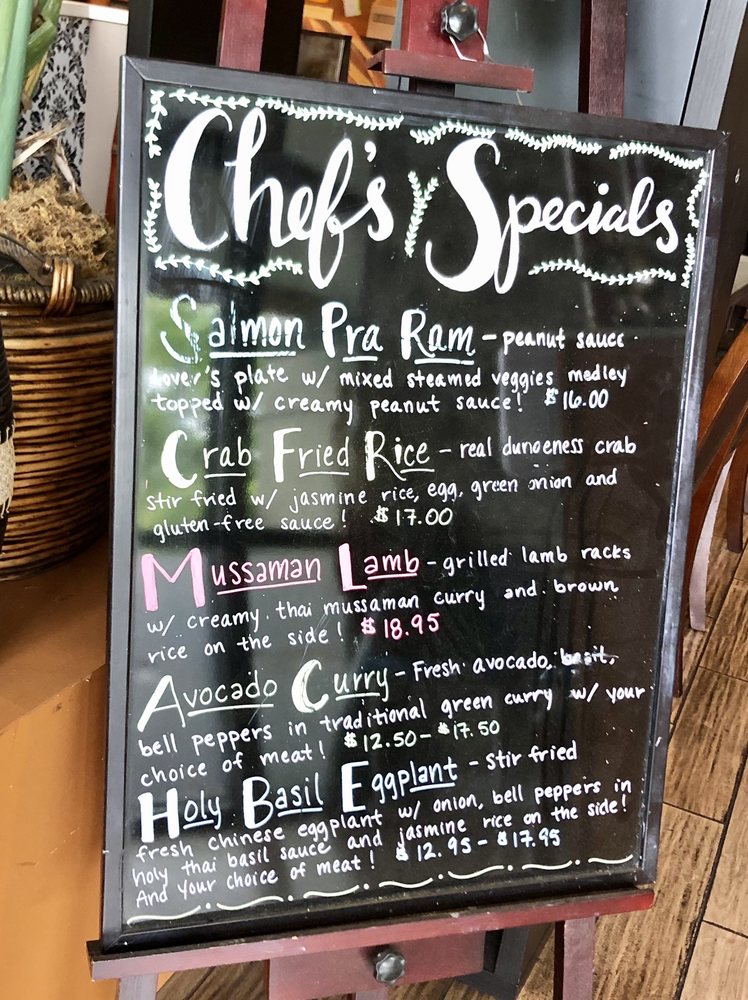 Chef's Specials
Salmon Pra Ram - peanut sauce
lover's plate w/ mixed steamed veggies medley
topped w/ creamy peanut sauce! $16.00
Crab Fried Rice - real dungeness crab
stir fried w/ jasmine rice, egg, green onion and
gluten-free sauce! $17.00
Mussaman Lamb - grilled lamb racks
w/ creamy thai mussaman curry and brown
rice on the side! $18.95
Avocado Curry - Fresh avocado, basil,
bell peppers in traditional green curry w/ your
choice of meat! $12.50 - $17.50
Holy Basil Eggplant - stir fried
fresh chinese eggplant w/ onion, bell peppers in
holy thai basil sauce and jasmine rice on the side!
And your choice of meat! $12.95 - $17.95